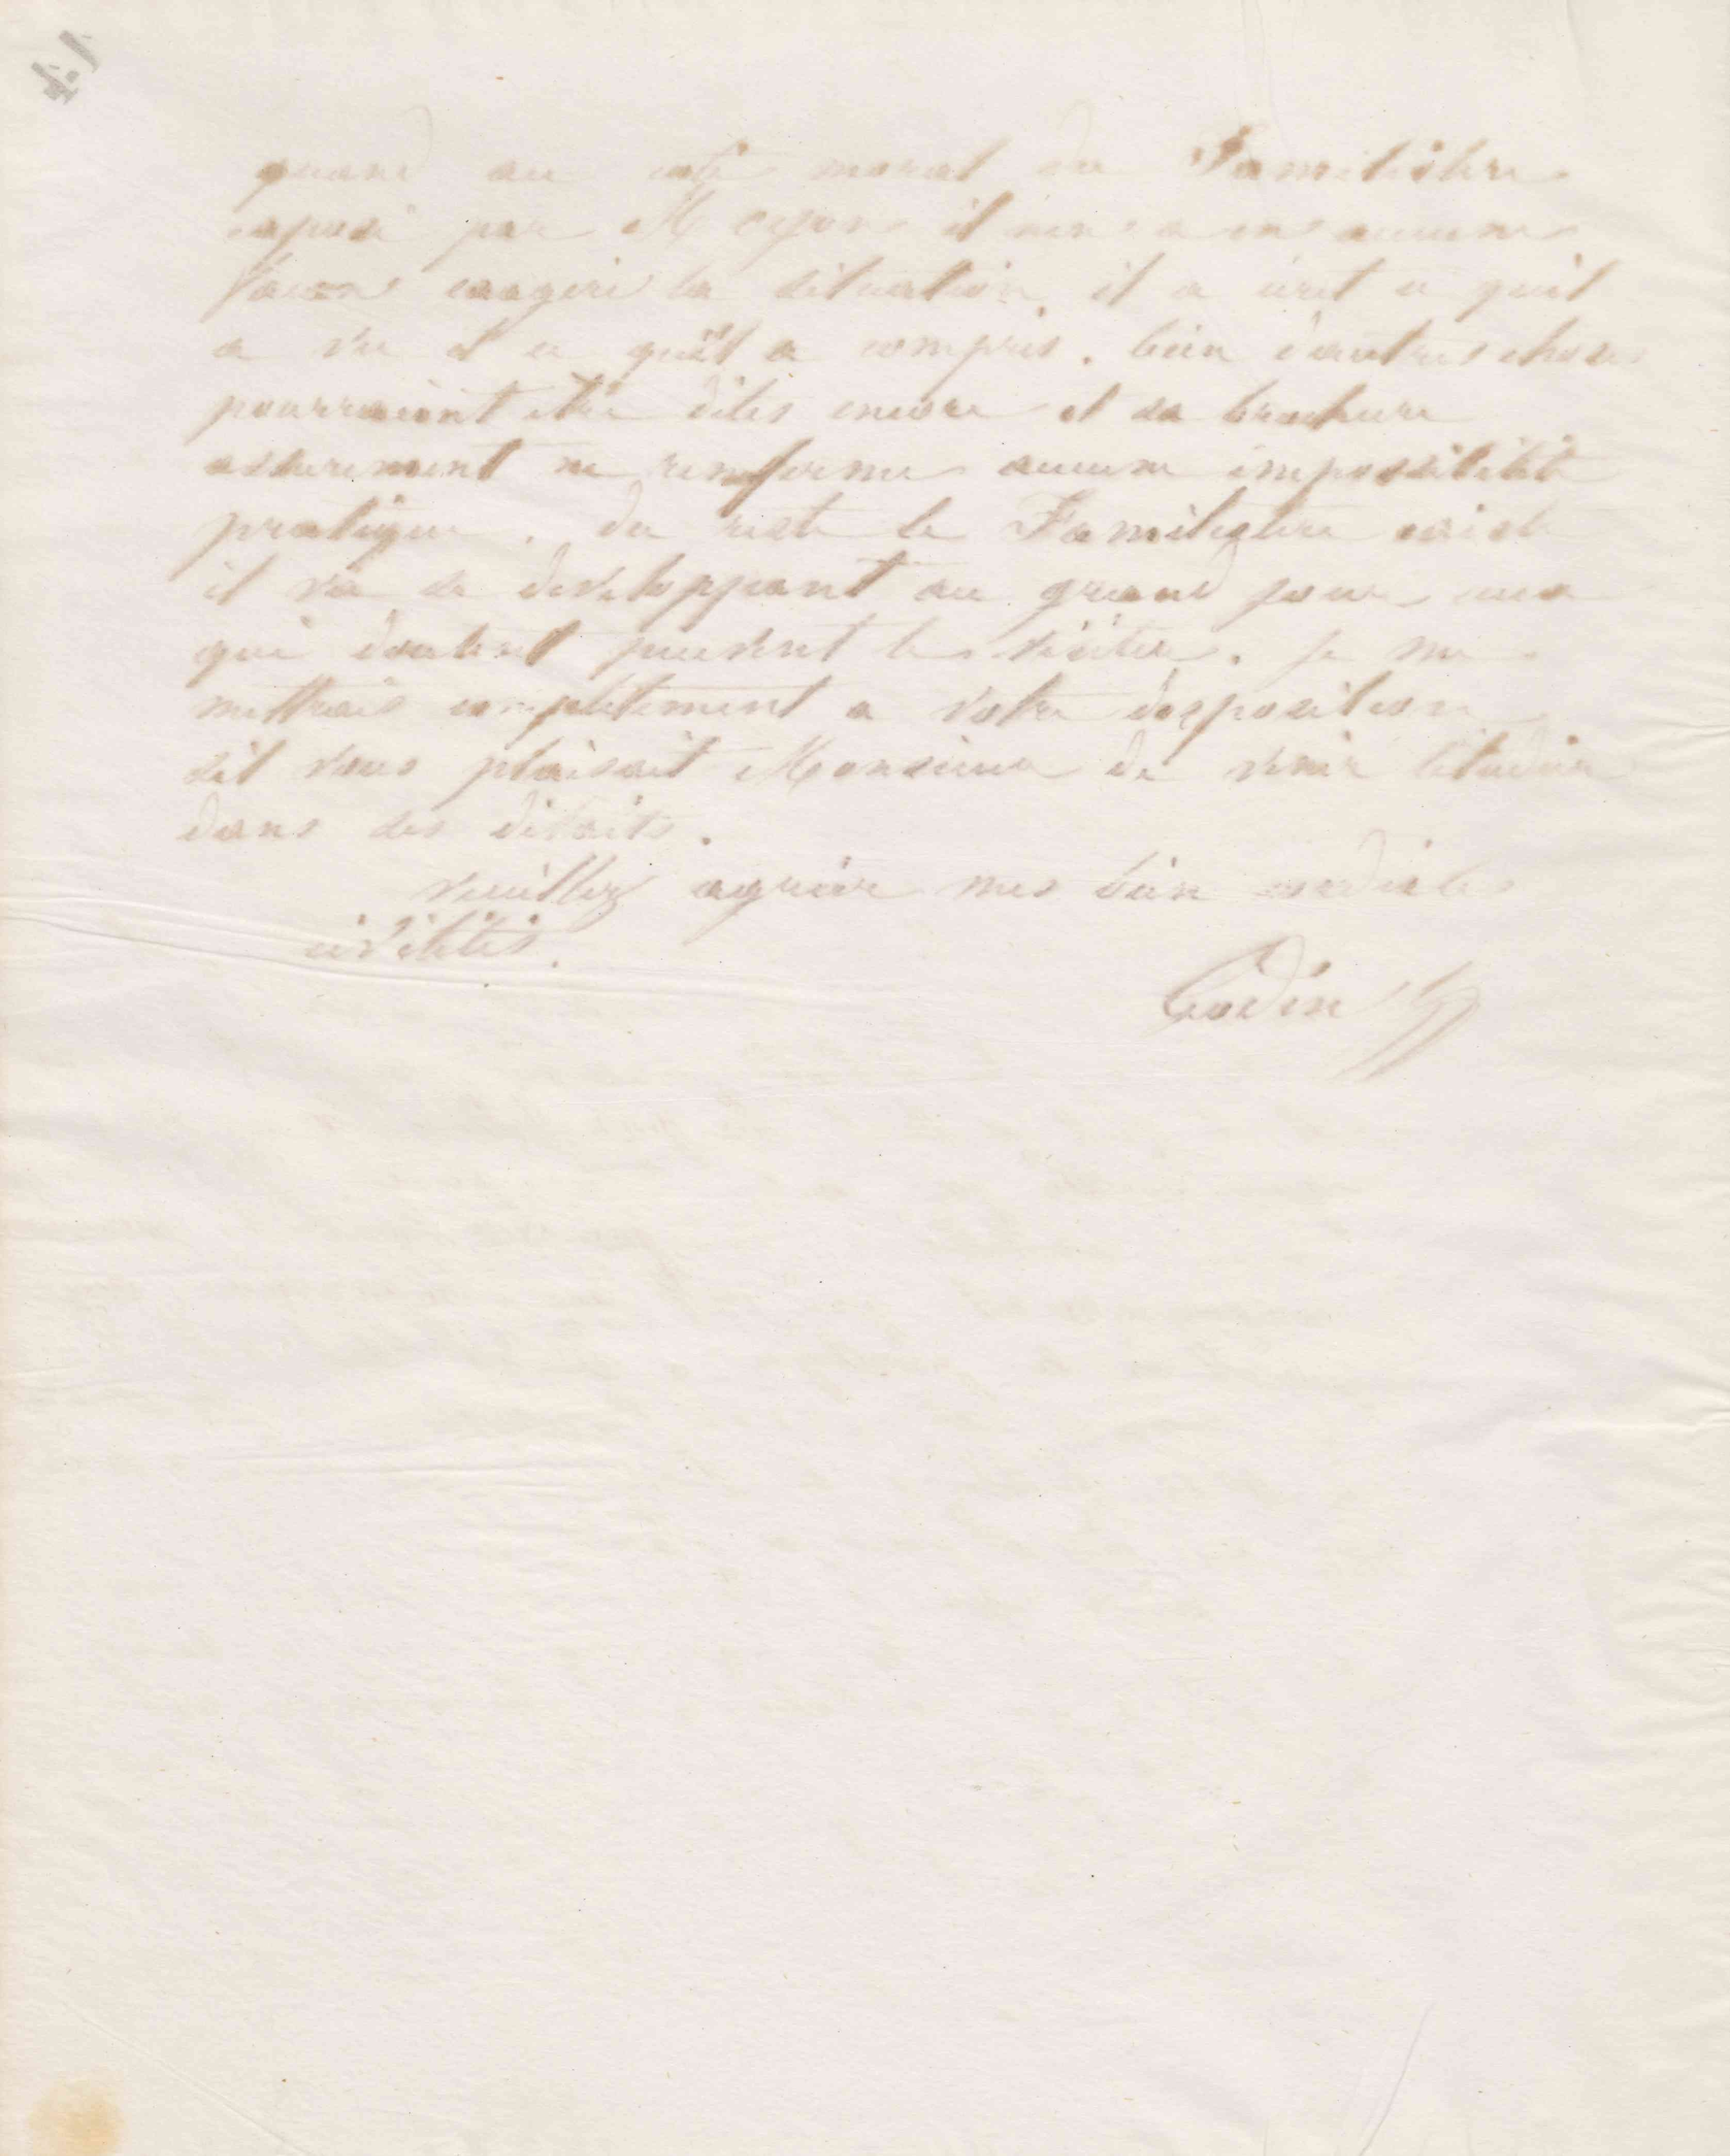 quand au coté moral du Familistère
exposé par M Oyon il n'en a en aucune
facon exagéré la situation, il a écrit ce qu'il
a vu et ce qu'il a compris. bien d'autres choses
pourraient etre dites encore et sa brochure
assurement ne renferme aucune impossibilité
pratique. du reste le Familistère existe
il va se developpant au grand jour ceux
qui doutent peuvent le visiter. je me
mettrais completement a votre disposition
sil vous plaisait Monsieur de venir l'étudier
dans ses détails.
veuillez agréer mes bien cordiales
civilités.
Godin